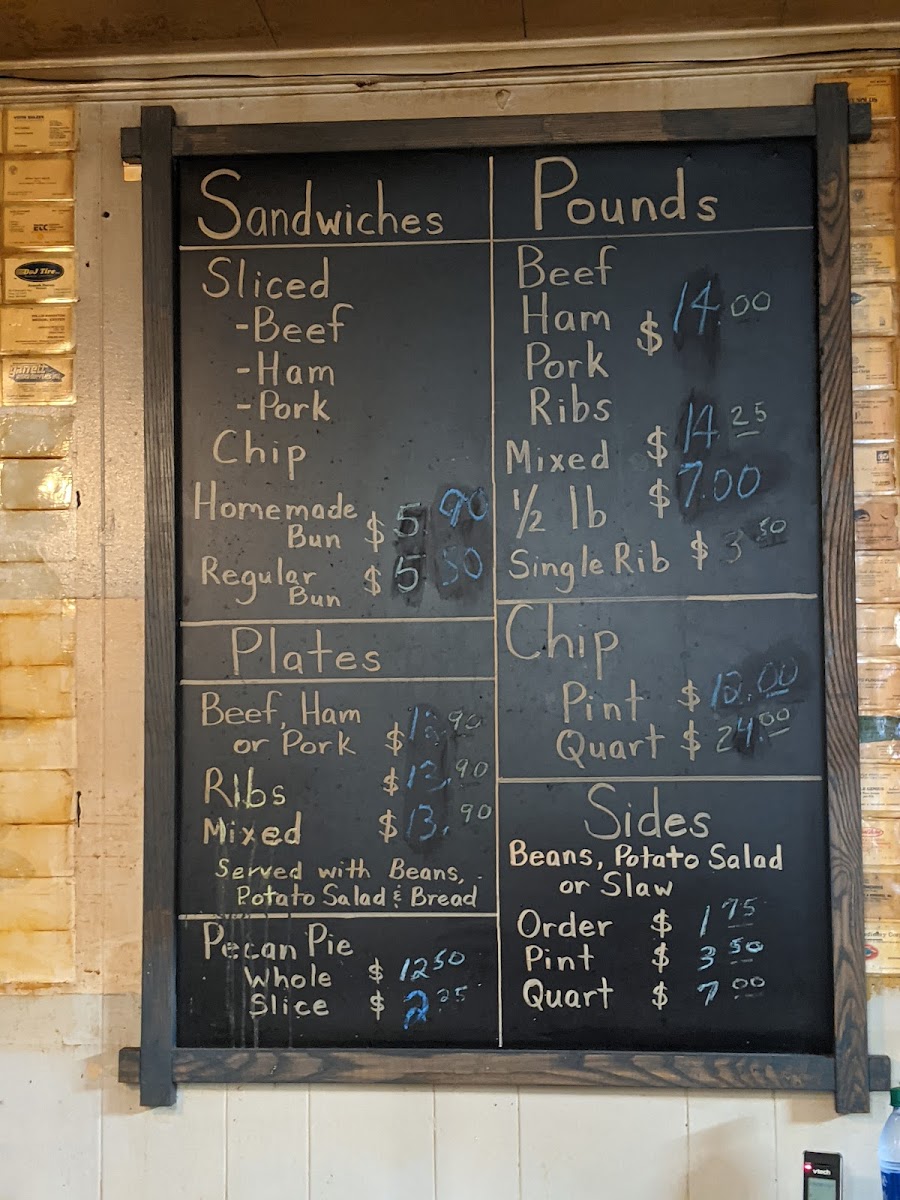 Sandwiches
Sliced
-Beef
-Ham
-Pork
Chip
Homemade
Bun $5.90
Regular
Bun $5.50
Plates
Beef, Ham
or Pork $ .90
Ribs $13.90
Mixed $13.90
Served with Beans,
Potato Salad & Bread
Pecan Pie
Whole $ 12 50
Slice $ 2 25
Pounds
Beef
Ham $ 14.00
Pork
Ribs
Mixed $ 14 25
1/2 lb $7.00
Single Rib $ 3 50
Chip
Pint $12.00
Quart $ 24 00
Sides
Beans, Potato Salad
or Slaw
Order $ 1 75
Pint $ 3 50
Quart $ 7 00
DoJ Tire
garrett
ETC
vtech